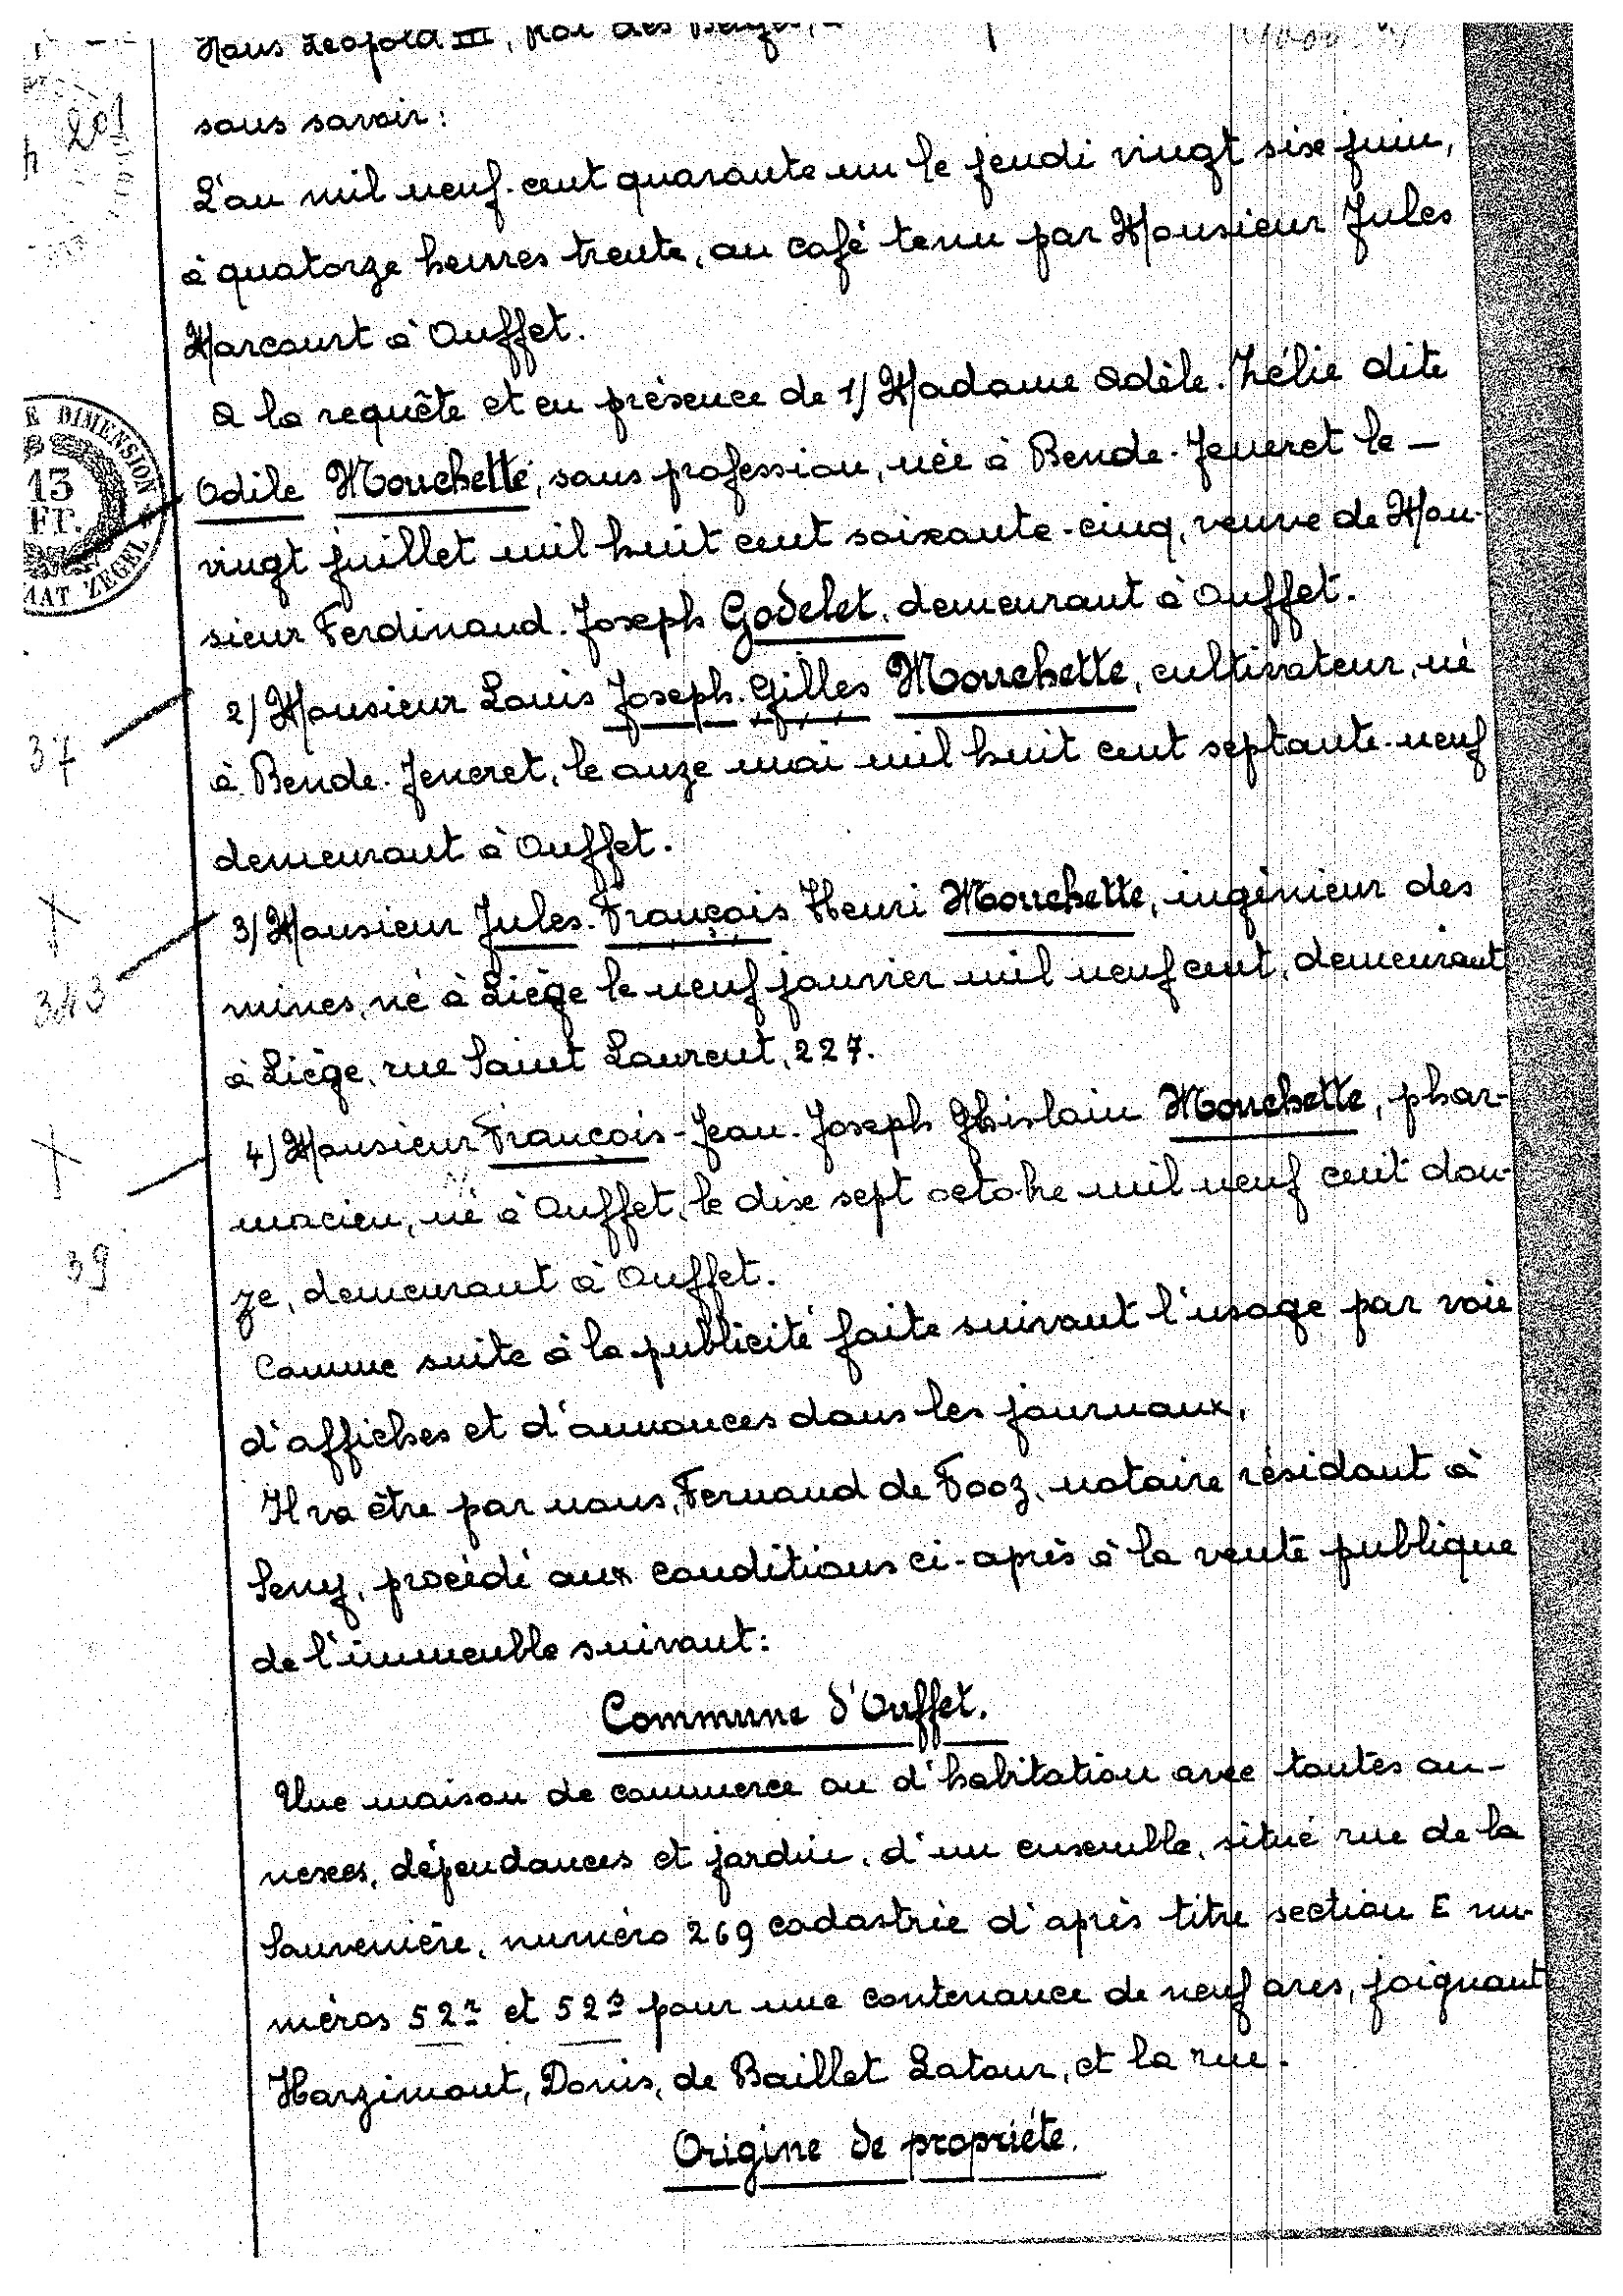 Nous Léopold III, Roi des Belges, à
201
sous savoir:
L'an mil neuf-cent quarante un le jeudi vingt six juin,
à quatorze heures trente, au café tenu par Monsieur Jules
Marcourt à Ouffet.
A la requête et en présence de 1) Madame Adèle-Zélie dite
E DIMENSION
13
FR.
AAT ZEGEL
Odile Mouchette, sans profession, née à Bende-Jeneret le -
vingt juillet mil huit cent soixante-cinq, veuve de Mon-
sieur Ferdinand-Joseph Godelet, demeurant à Ouffet.
2) Monsieur Louis Joseph-Gilles Mouchette, cultivateur, né
37
à Bende-Jeneret, le onze mai mil huit cent septante-neuf
demeurant à Ouffet.
3) Monsieur Jules-François Henri Mouchette, ingénieur des
343
mines, né à Liège le neuf janvier mil neuf cent, demeurant
à Liège, rue Saint Laurent, 227.
4) Monsieur François-Jean-Joseph Ghislain Mouchette, phar-
macien, né à Ouffet, le dix sept octobre mil neuf cent dou-
39
ze, demeurant à Ouffet.
Comme suite à la publicité faite suivant l'usage par voie
d'affiches et d'annonces dans les journaux,
Il va être par nous, Fernand de Fooz, notaire résidant à
Seny, procédé aux conditions ci-après à la vente publique
de l'immeuble suivant:
Commune d'Ouffet.
Une maison de commerce ou d'habitation avec toutes an-
nexes, dépendances et jardin, d'un ensemble, situé rue de la
Sauvenière, numéro 269 cadastrée d'après titre section E nu-
méros 52 et 52 pour une contenance de neuf ares, joignant
Harzimont, Donis, de Baillet Latour, et la rue.
Origine de propriété.